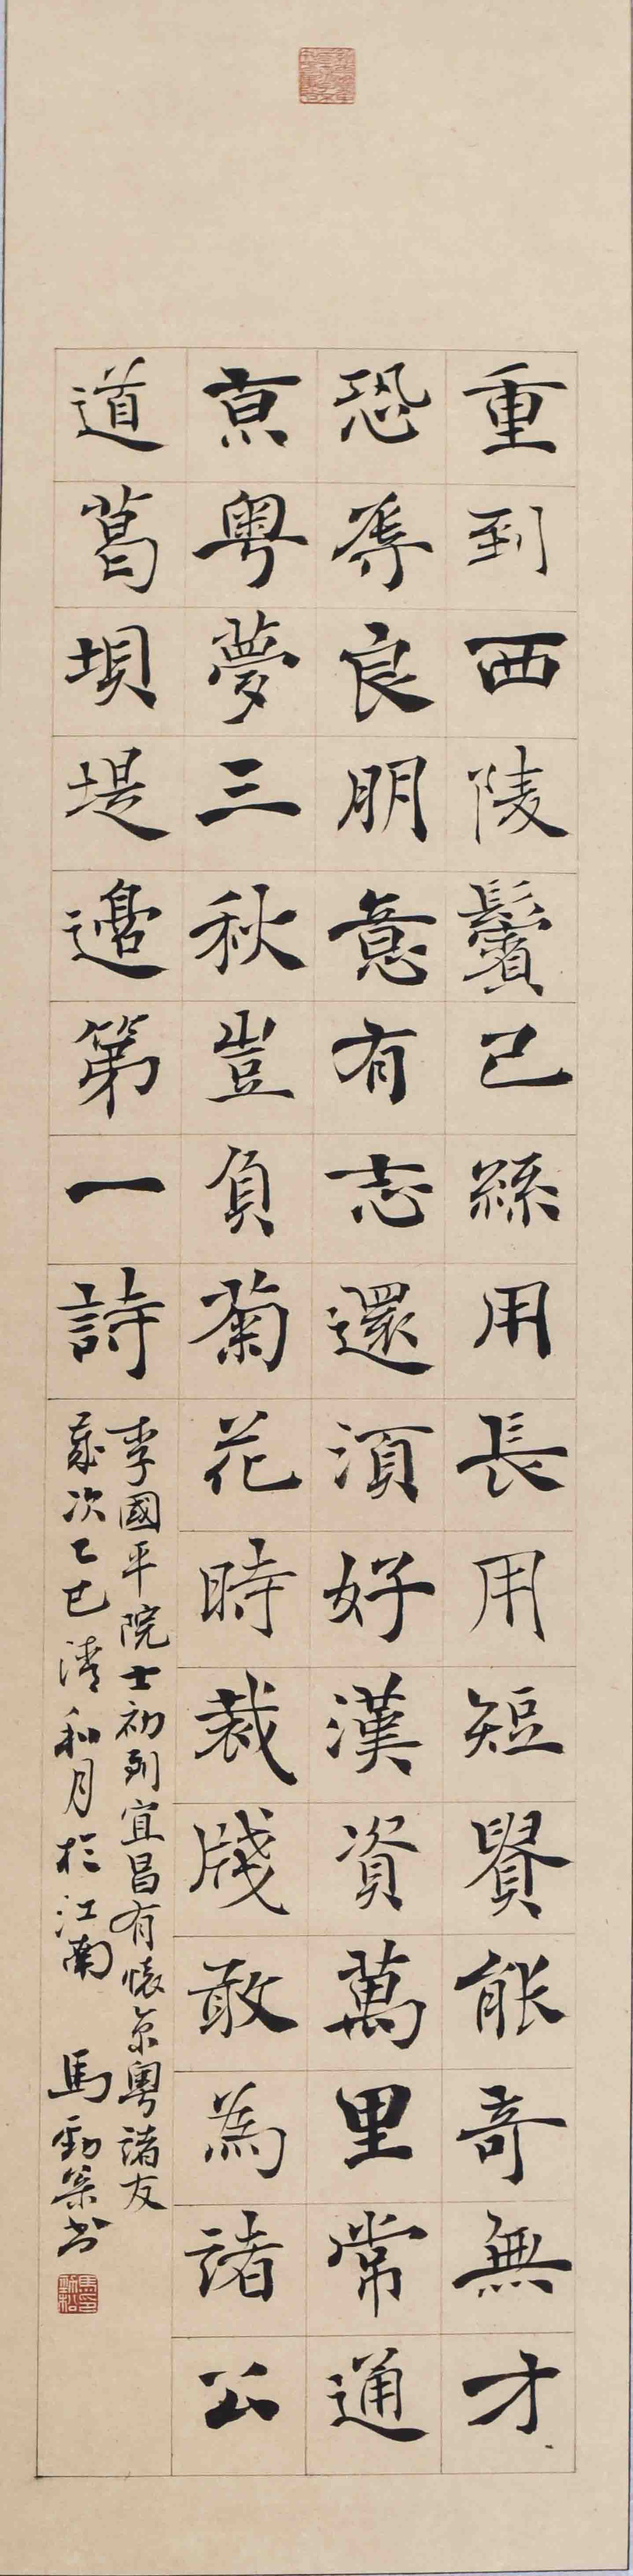 重到西陵鬢已絲用長用短賢能奇無才
恐辱良朋意有志還須好漢資萬里常通
京粵夢三秋豈負菊花時裁牋敢為諸公
道葛垻堤邊第一詩
李國平院士初到宜昌有懷京粵諸友
歲次乙巳清和月於江南 馬勁松書
馬勁松印